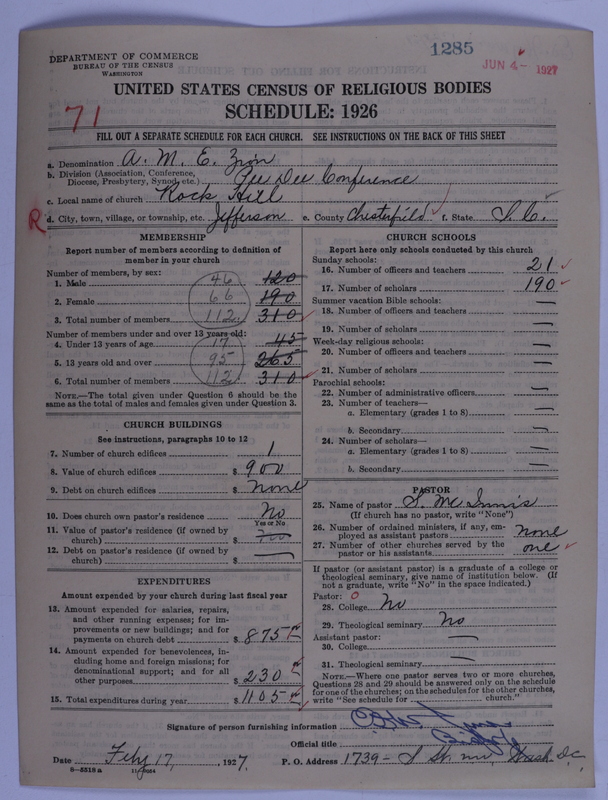 1285
JUN 4 - 1927
DEPARTMENT OF COMMERCE
BUREAU OF THE CENSUS
WASHINGTON
UNITED STATES CENSUS OF RELIGIOUS BODIES
SCHEDULE: 1926
71
FILL OUT A SEPARATE SCHEDULE FOR EACH CHURCH. SEE INSTRUCTIONS ON THE BACK OF THIS SHEET
a. Denomination A. M. E. Zion
b. Division (Association, Conference, Diocese, Presbytery, Synod, etc.) Pee Dee Conference
c. Local name of church Rock Hill
R d. City, town, village, or township, etc. Jefferson e. County Chesterfield f. State S. C.
MEMBERSHIP
Report number of members according to definition of member in your church
Number of members, by sex:
1. Male 46 120
2. Female 66 190
3. Total number of members 112 310
Number of members under and over 13 years old:
4. Under 13 years of age 17 45
5. 13 years old and over 95 265
6. Total number of members 112 310
NOTE.—The total given under Question 6 should be the same as the total of males and females given under Question 3.
CHURCH BUILDINGS
See instructions, paragraphs 10 to 12
7. Number of church edifices 1
8. Value of church edifices $ 900
9. Debt on church edifices $ none
10. Does church own pastor's residence No
Yes or No
11. Value of pastor's residence (if owned by church) $
12. Debt on pastor's residence (if owned by church) $ —
EXPENDITURES
Amount expended by your church during last fiscal year
13. Amount expended for salaries, repairs, and other running expenses; for improvements or new buildings; and for payments on church debt $ 875
14. Amount expended for benevolences, including home and foreign missions; for denominational support; and for all other purposes $ 230
15. Total expenditures during year $ 1105
CHURCH SCHOOLS
Report here only schools conducted by this church
Sunday schools:
16. Number of officers and teachers 21
17. Number of scholars 190
Summer vacation Bible schools:
18. Number of officers and teachers —
19. Number of scholars —
Week-day religious schools:
20. Number of officers and teachers —
21. Number of scholars —
Parochial schools:
22. Number of administrative officers —
23. Number of teachers—
a. Elementary (grades 1 to 8) —
b. Secondary —
24. Number of scholars—
a. Elementary (grades 1 to 8) —
b. Secondary —
PASTOR
25. Name of pastor S. McInnis
(If church has no pastor, write "None")
26. Number of ordained ministers, if any, employed as assistant pastors none
27. Number of other churches served by the pastor or his assistants one
If pastor (or assistant pastor) is a graduate of a college or theological seminary, give name of institution below. (If not a graduate, write "No" in the space indicated.)
Pastor: O
28. College No
29. Theological seminary No
Assistant pastor: —
30. College —
31. Theological seminary —
NOTE.—Where one pastor serves two or more churches, Questions 28 and 29 should be answered only on the schedule for one of the churches; on the schedules for the other churches, write "See schedule for church."
Signature of person furnishing information
Official title Bishop
Date Feby 17, 1927. P. O. Address 1739 - S St. nw, Wash. D.C.
8—5518a